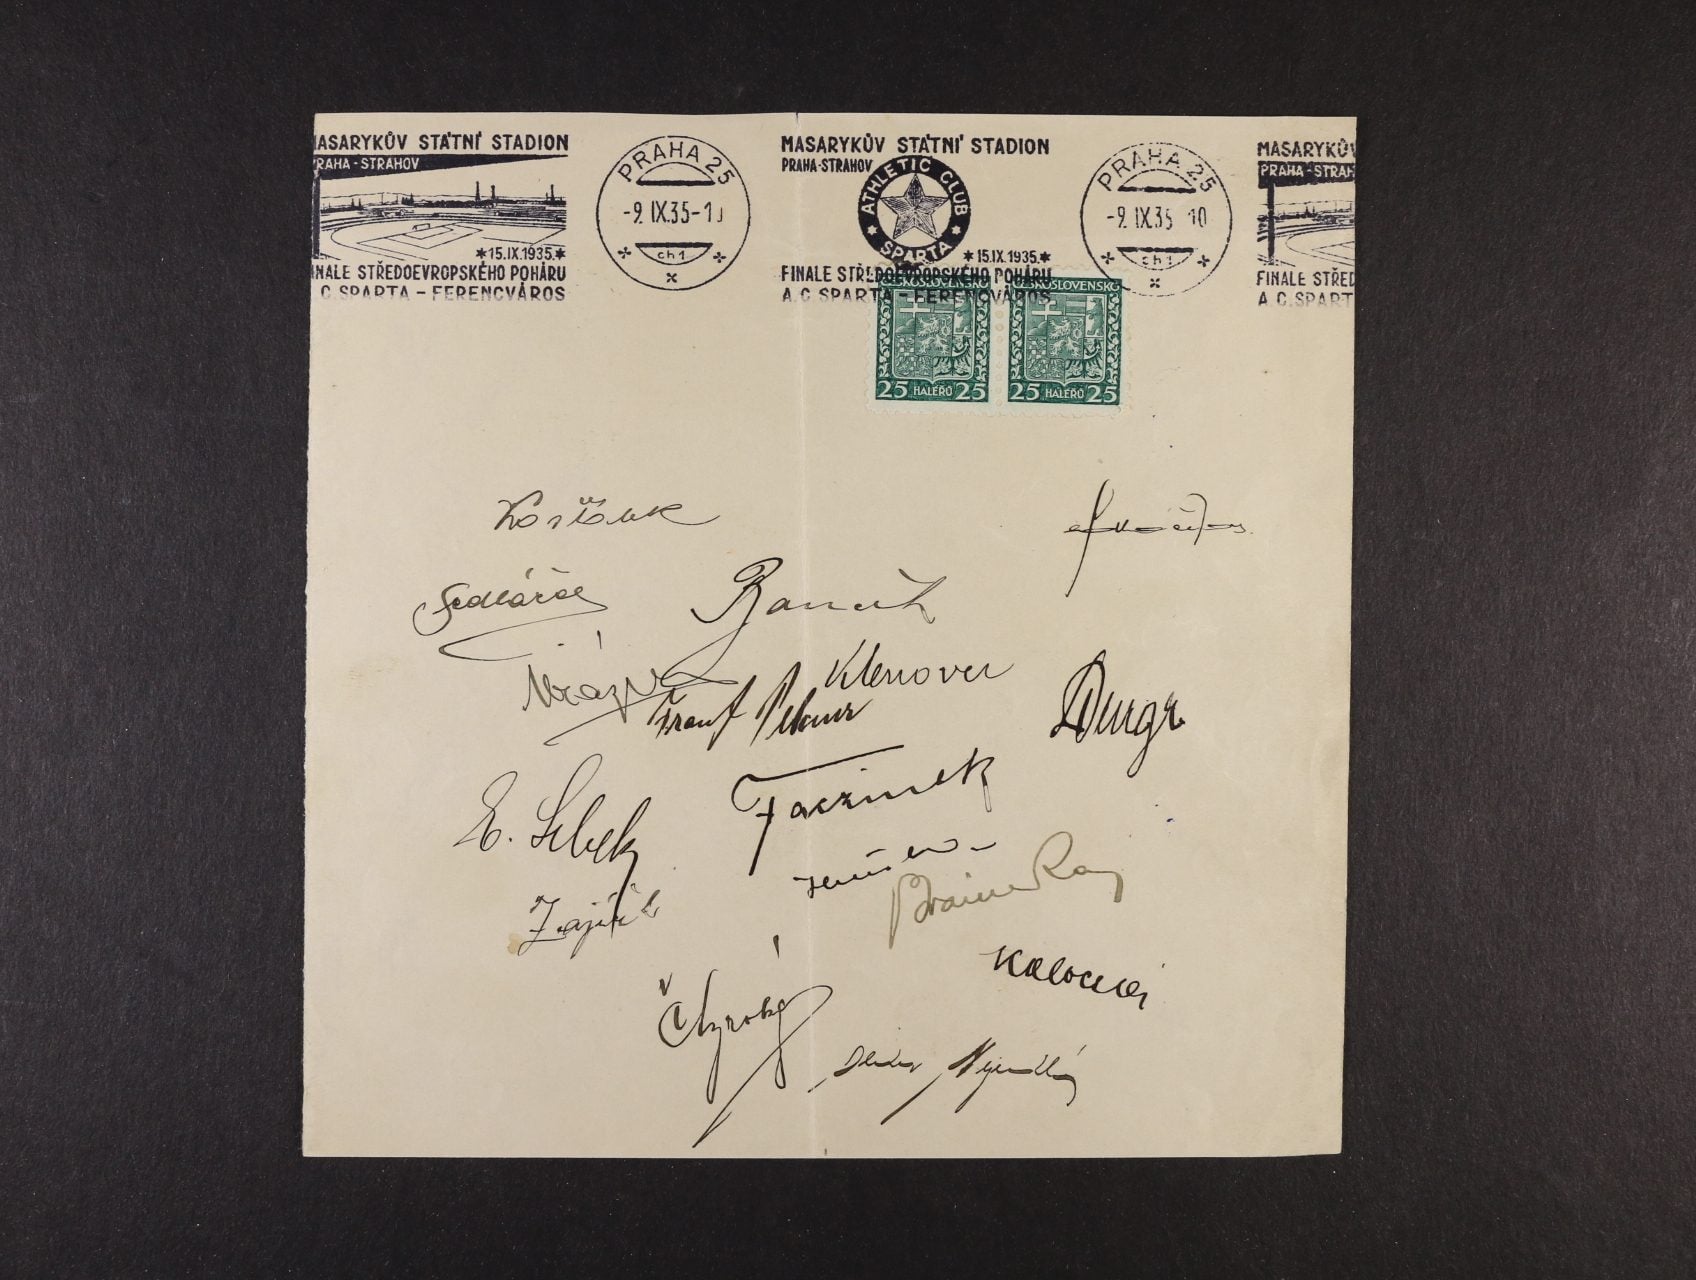 MASARYKŮV STÁTNÍ STADION
PRAHA-STRAHOV
*15.IX.1935.*
FINALE STŘEDOEVROPSKÉHO POHÁRU
C. SPARTA - FERENCVÁROS
PRAHA 25
-9. IX. 35-10
ch1
MASARYKŮV STÁTNÍ STADION
PRAHA-STRAHOV
ATHLETIC CLUB
SPARTA
*15.IX.1935.*
FINALE STŘEDOEVROPSKÉHO POHÁRU
A. C. SPARTA - FERENCVÁROS
PRAHA 25
-9. IX. 35 10
ch1
MASARYKŮV
PRAHA-STRAH
FINALE STŘED
A. C. SPART
ČESKOSLOVENSKO
25 HALÉŘŮ 25
ČESKOSLOVENSKO
25 HALÉŘŮ 25
Košťálek
Sedláček
Klenovec
E. Srbek
Zajíček
Čtyřoký
Faczinek
Braine Ray
Kalocsay
Nejedlý